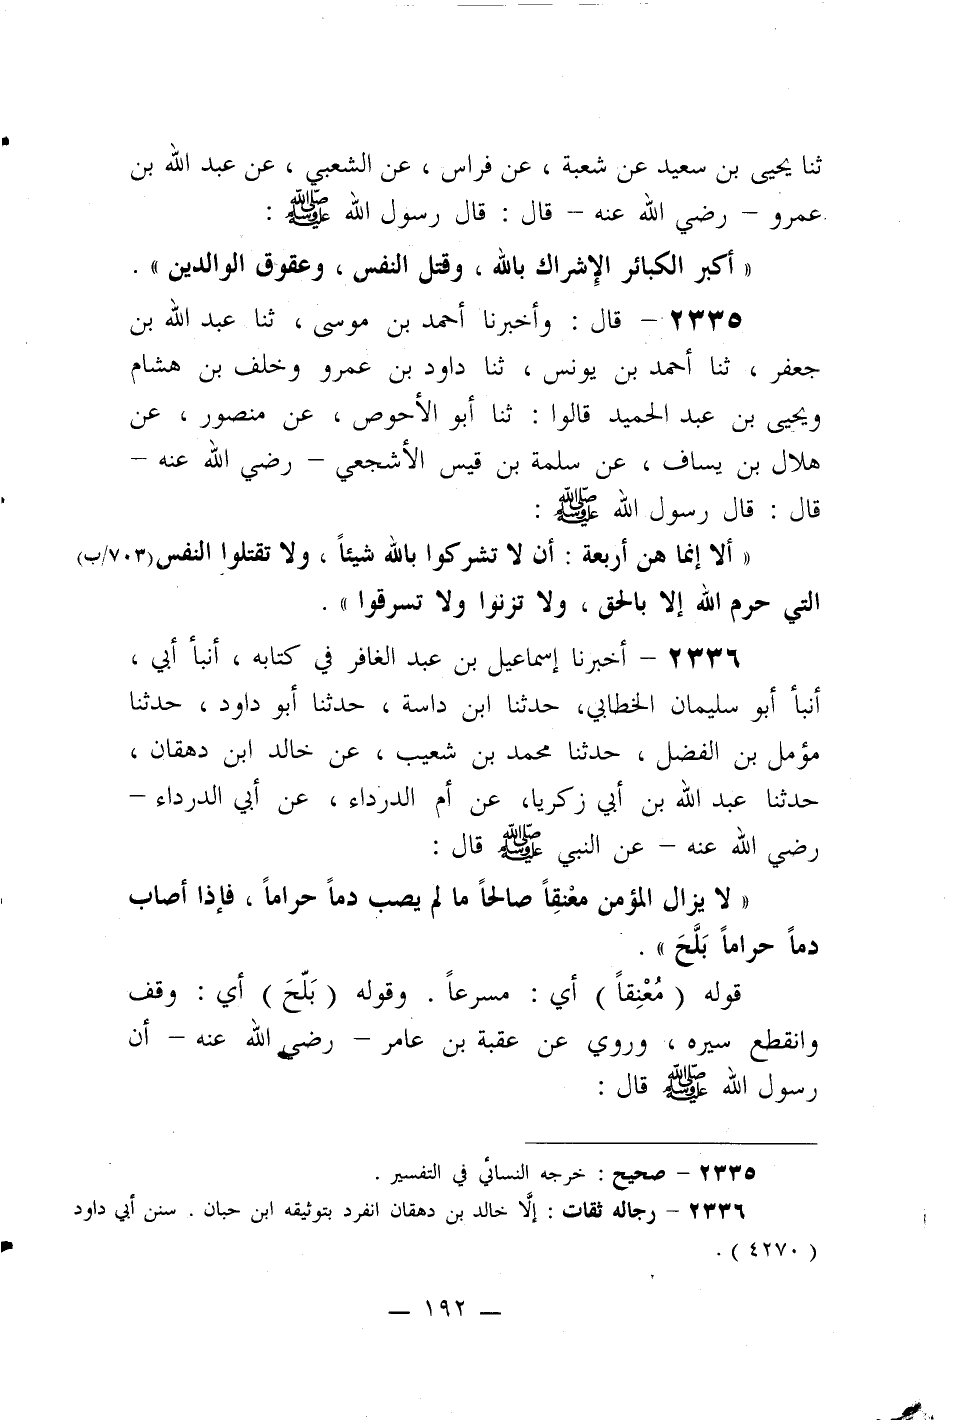 ثنا يحيى بن سعيد عن شعبة ، عن فراس ، عن الشعبي ، عن عبد الله بن
عمرو – رضي الله عنه – قال : قال رسول الله ﷺ :
« أكبر الكبائر الإِشراك بالله ، وقتل النفس ، وعقوق الوالدين » .
٢٣٣٥ – قال : وأخبرنا أحمد بن موسى ، ثنا عبد الله بن
جعفر ، ثنا أحمد بن يونس ، ثنا داود بن عمرو وخلف بن هشام
ويحيى بن عبد الحميد قالوا : ثنا أبو الأحوص ، عن منصور ، عن
هلال بن يساف ، عن سلمة بن قيس الأشجعي – رضي الله عنه –
قال : قال رسول الله ﷺ :
« ألا إنما هن أربعة : أن لا تشركوا بالله شيئاً ، ولا تقتلوا النفس (٧٠٣/ب)
التي حرم الله إلا بالحق ، ولا تزنوا ولا تسرقوا » .
٢٣٣٦ – أخبرنا إسماعيل بن عبد الغافر في كتابه ، أنبأ أبي ،
أنبأ أبو سليمان الخطابي، حدثنا ابن داسة ، حدثنا أبو داود ، حدثنا
مؤمل بن الفضل ، حدثنا محمد بن شعيب ، عن خالد ابن دهقان ،
حدثنا عبد الله بن أبي زكريا، عن أم الدرداء ، عن أبي الدرداء –
رضي الله عنه – عن النبي ﷺ قال :
« لا يزال المؤمن معْنِقاً صالحاً ما لم يصب دماً حراماً ، فإذا أصاب
دماً حراماً بَلَّحَ » .
قوله ( مُعْنِقاً ) أي : مسرعاً . وقوله ( بَلّحَ ) أي : وقف
وانقطع سيره ، وروي عن عقبة بن عامر – رضي الله عنه – أن
رسول الله ﷺ قال :
٢٣٣٥ – صحيح : خرجه النسائي في التفسير .
٢٣٣٦ – رجاله ثقات : إلَّا خالد بن دهقان انفرد بتوثيقه ابن حبان . سنن أبي داود
( ٤٢٧٠ ) .
— ١٩٢ —